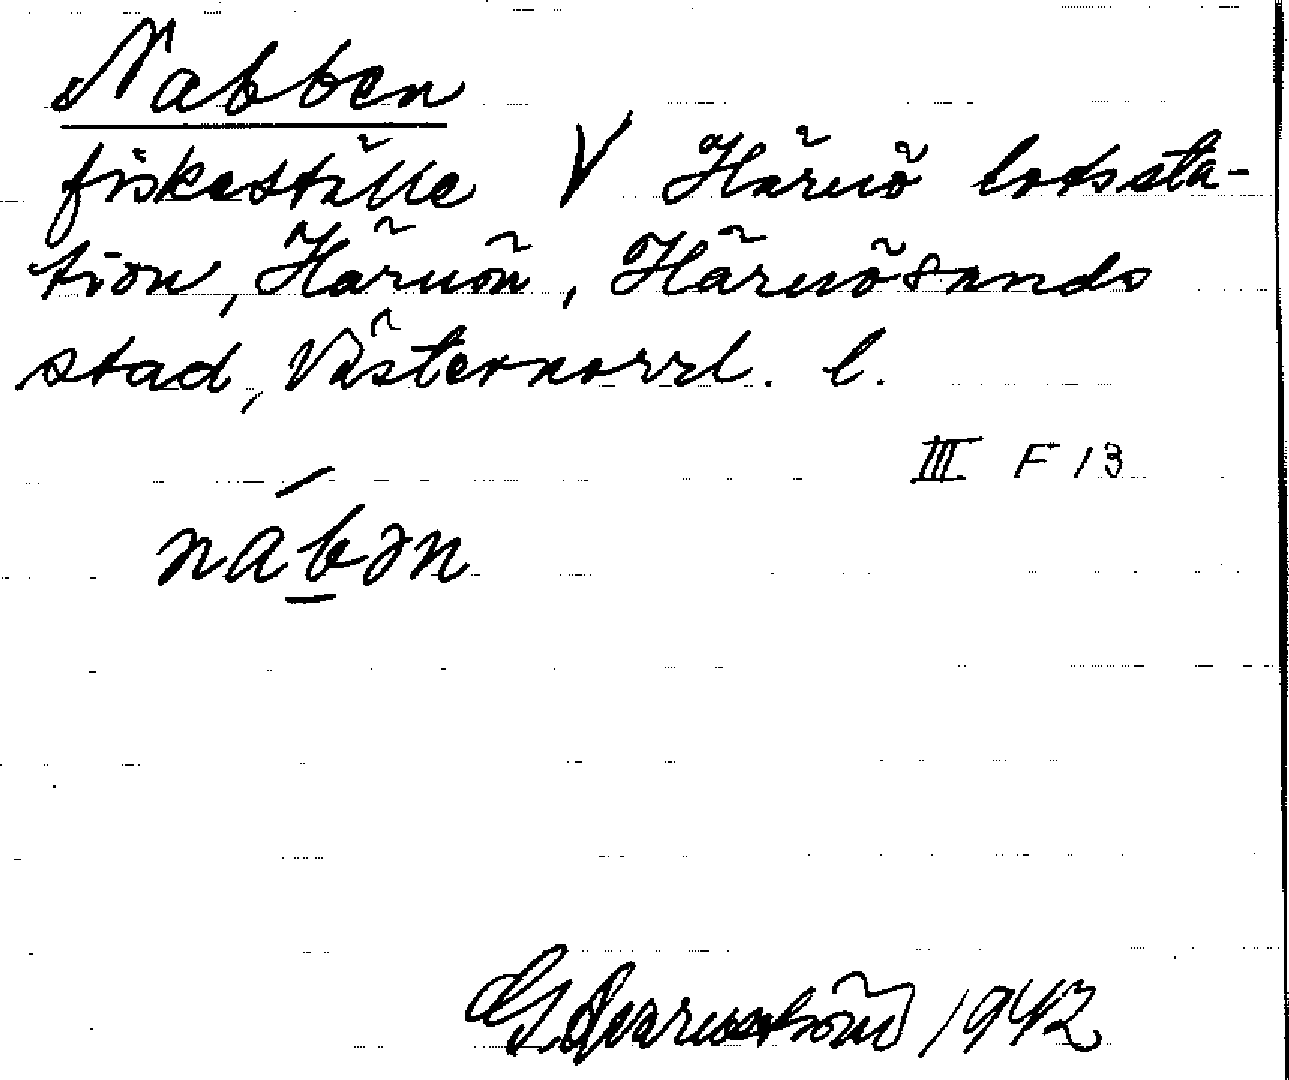 Nabben
fiskeställe V Härnö lotssta-
tion, Härnön, Härnösands
stad, Västernorrl. l.
III F 13
nábən
G. Qvarnström 1942